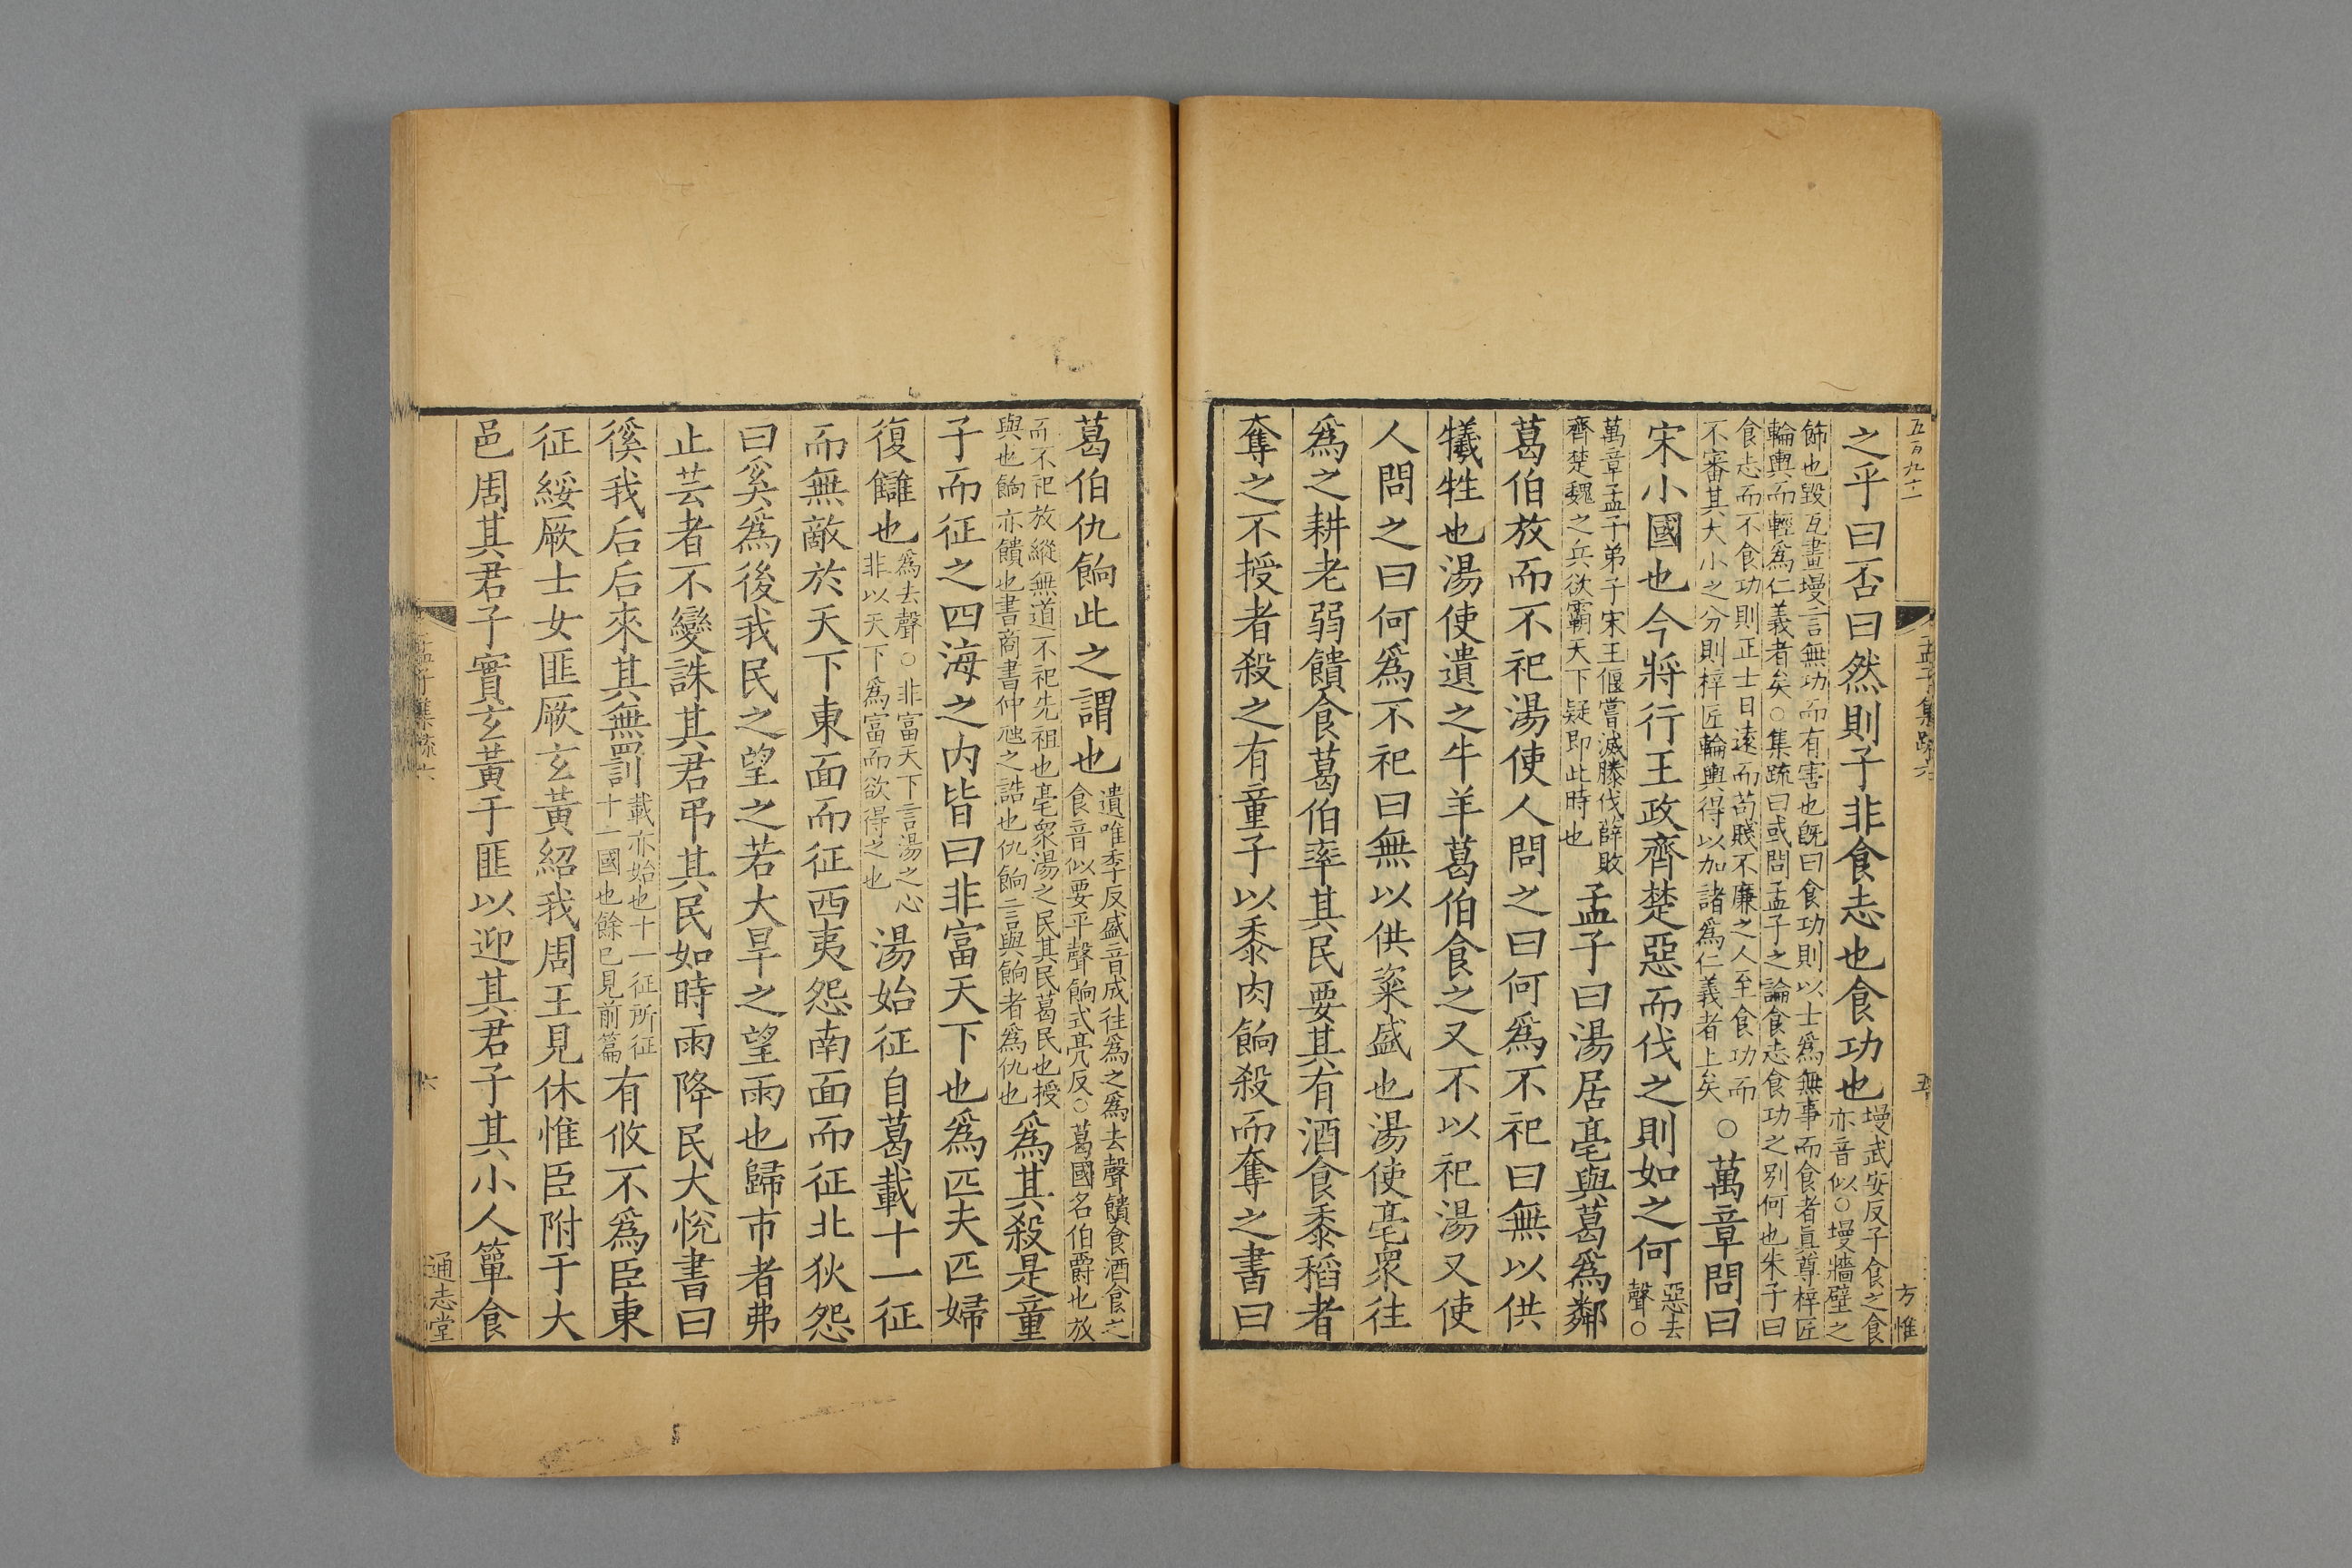 五百九十一
孟子集疏六
五
方惟
之乎曰否曰然則子非食志也食功也墁武安反子食之食亦音似○墁牆壁之
飾也毀瓦畫墁言無功而有害也旣曰食功則以士爲無事而食者眞尊梓匠
輪輿而輕爲仁義者矣○集疏曰或問孟子之論食志食功之別何也朱子曰
食志而不食功則正士日遠而苟賤不廉之人至食功而
不審其大小之分則梓匠輪輿得以加諸爲仁義者上矣○萬章問曰
宋小國也今將行王政齊楚惡而伐之則如之何惡去聲○
萬章孟子弟子宋王偃嘗滅滕伐薛敗
齊楚魏之兵欲霸天下疑即此時也孟子曰湯居亳與葛爲鄰
葛伯放而不祀湯使人問之曰何爲不祀曰無以供
犧牲也湯使遺之牛羊葛伯食之又不以祀湯又使
人問之曰何爲不祀曰無以供粢盛也湯使亳衆往
爲之耕老弱饋食葛伯率其民要其有酒食黍稻者
奪之不授者殺之有童子以黍肉餉殺而奪之書曰
葛伯仇餉此之謂也遺唯季反盛音成往爲之爲去聲饋食酒食之食音似要平聲餉式亮反○葛國名伯爵也放
而不祀放縱無道不祀先祖也亳衆湯之民其民葛民也授
與也餉亦饋也書商書仲虺之誥也仇餉言與餉者爲仇也爲其殺是童
子而征之四海之内皆曰非富天下也爲匹夫匹婦
復讎也爲去聲○非富天下言湯之心非以天下爲富而欲得之也湯始征自葛載十一征
而無敵於天下東面而征西夷怨南面而征北狄怨
曰奚爲後我民之望之若大旱之望雨也歸市者弗
止芸者不變誅其君弔其民如時雨降民大悅書曰
徯我后后來其無罰載亦始也十一征所征十一國也餘已見前篇有攸不爲臣東
征綏厥士女匪厥玄黃紹我周王見休惟臣附于大
邑周其君子實玄黃于匪以迎其君子其小人簞食
孟子集疏六
六
通志堂